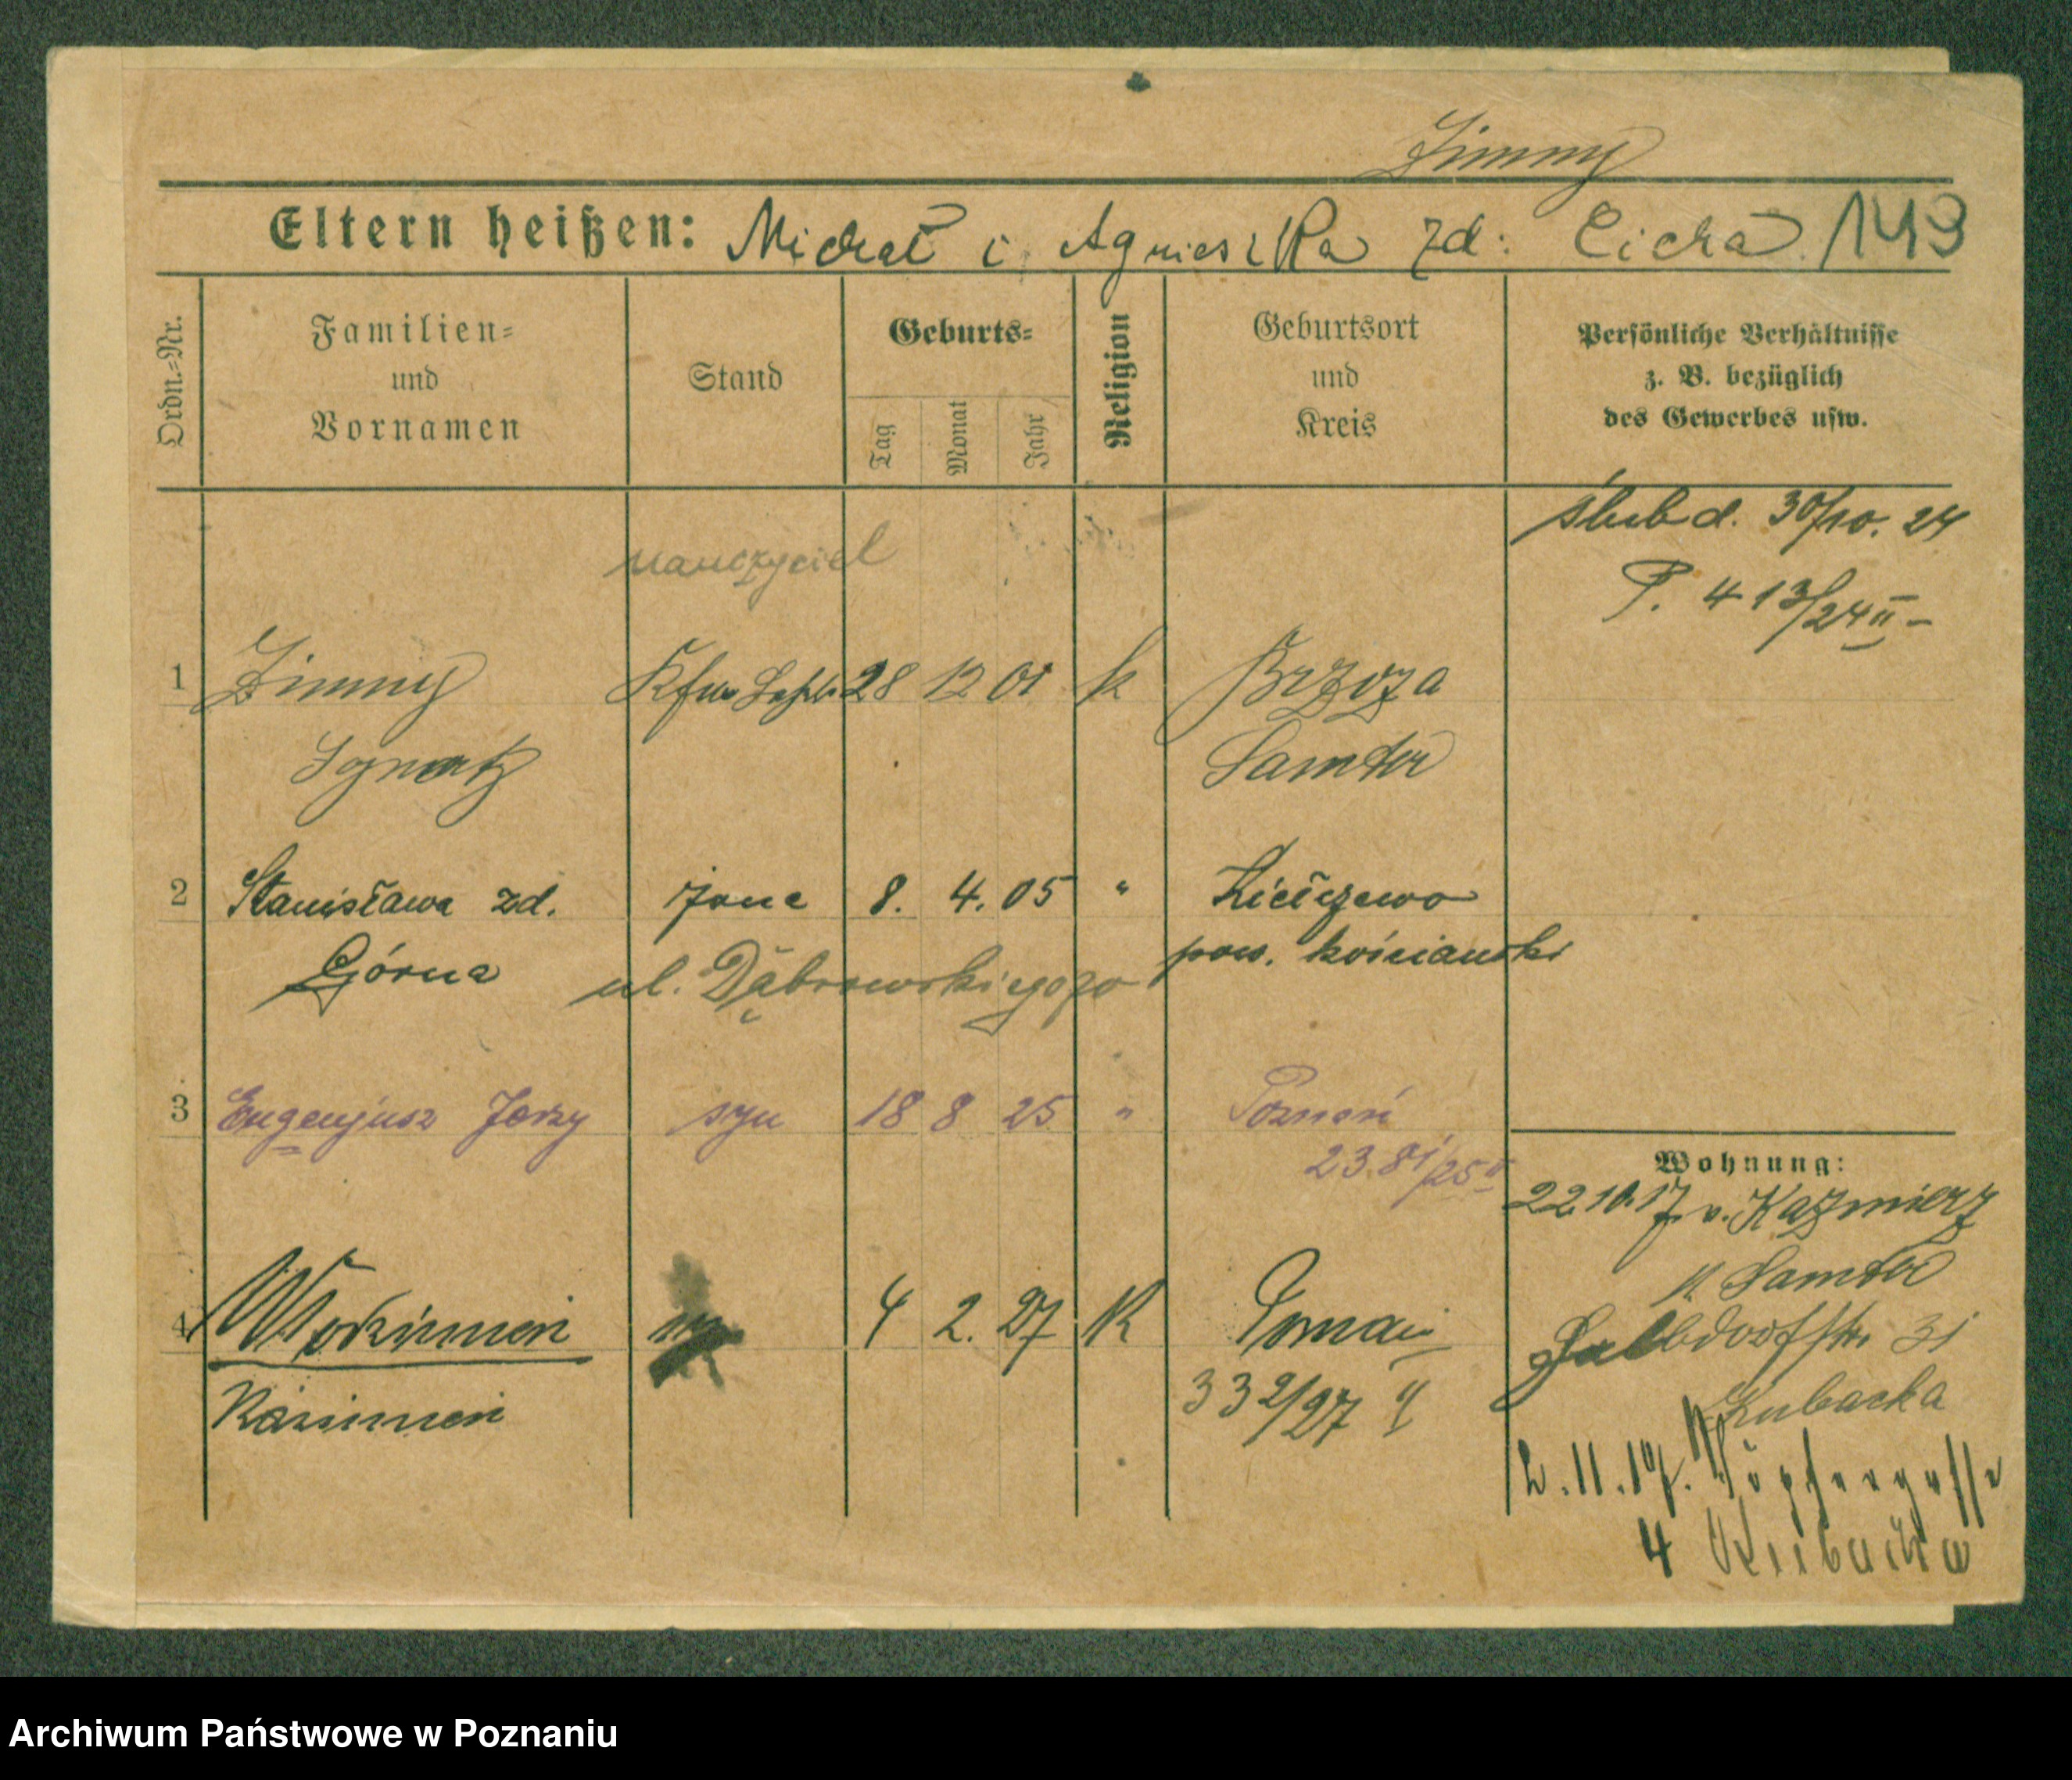 Zimny
Eltern heißen: Michał i Agnieszka zd: Cicha 149
Ordn.=Nr.
Familien=
und
Vornamen
Stand
Geburts=
Tag
Monat
Jahr
Religion
Geburtsort
und
Kreis
Persönliche Verhältnisse
z. B. bezüglich
des Gewerbes usw.
ślub d. 30/10. 24
P. 413/24 II -
nauczyciel
1 Zimny Kfm 28 12 01 k Brzoza
Ignatz Samter
2 Stanisława zd. żona 8. 4. 05 " Kiełczewo
Górna pow. kościański
ul. Dąbrowskiego
3 Eugenjusz Jerzy syn 18 8 25 " Poznań
2381/25 II
Wohnung:
22.10.17 v. Kazmierz
Samter
4 Włodzimierz 4 2. 27 K Poznań
31
Kazimierz 332/27 II
Kubacka
2.11.17. Töpfergasse
4 Kubacka
Archiwum Państwowe w Poznaniu